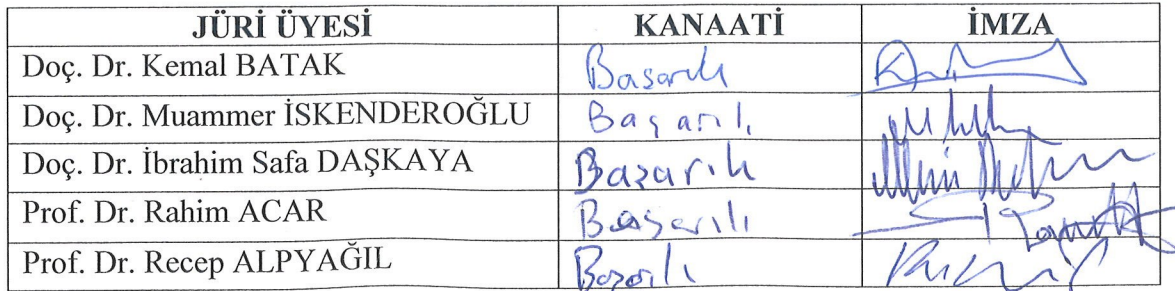 JÜRİ ÜYESİ KANAATİ İMZA
Doç. Dr. Kemal BATAK Başarılı
Doç. Dr. Muammer İSKENDEROĞLU Başarılı
Doç. Dr. İbrahim Safa DAŞKAYA Başarılı
Prof. Dr. Rahim ACAR Başarılı
Prof. Dr. Recep ALPYAĞIL Başarılı